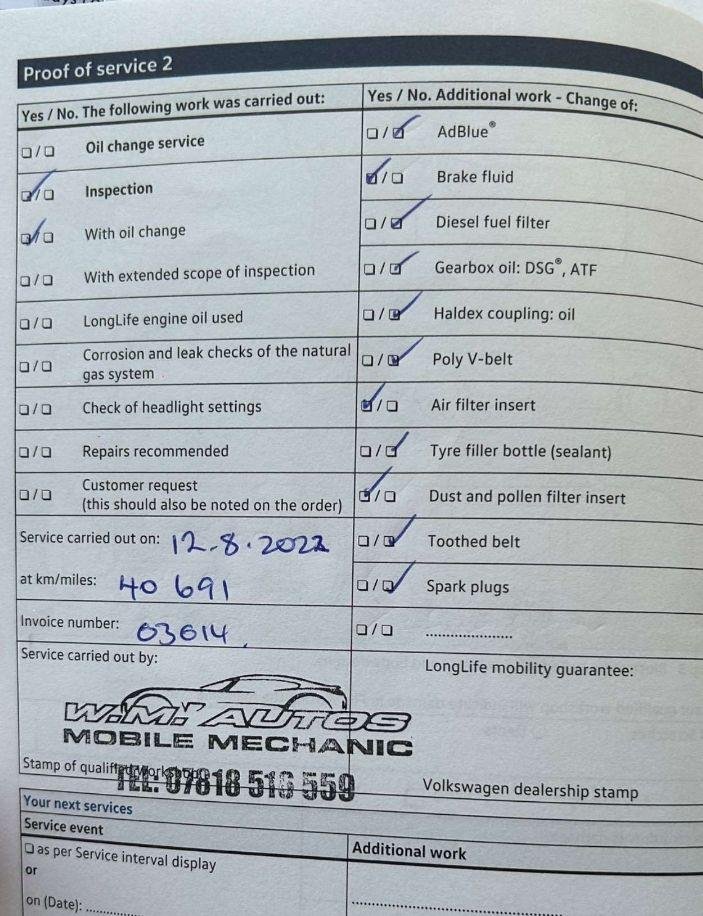 Proof of service 2
Yes / No. The following work was carried out:
☐/☐ Oil change service
☑/☐ Inspection
☑/☐ With oil change
☐/☐ With extended scope of inspection
☐/☐ LongLife engine oil used
☐/☐ Corrosion and leak checks of the natural
gas system
☐/☐ Check of headlight settings
☐/☐ Repairs recommended
☐/☐ Customer request
(this should also be noted on the order)
Service carried out on: 12.8.2022
at km/miles: 40 691
Invoice number: 03614
Service carried out by:
W.M. AUTOS
MOBILE MECHANIC
Stamp of qualified workshop:
TEL: 07818 516 559
Yes / No. Additional work - Change of:
☐/☑ AdBlue®
☑/☐ Brake fluid
☐/☑ Diesel fuel filter
☐/☑ Gearbox oil: DSG®, ATF
☐/☑ Haldex coupling: oil
☐/☑ Poly V-belt
☑/☐ Air filter insert
☐/☑ Tyre filler bottle (sealant)
☑/☐ Dust and pollen filter insert
☐/☑ Toothed belt
☐/☑ Spark plugs
☐/☐ .....................
LongLife mobility guarantee:
Volkswagen dealership stamp
Your next services
Service event
☐ as per Service interval display
or
on (Date): ..............
Additional work